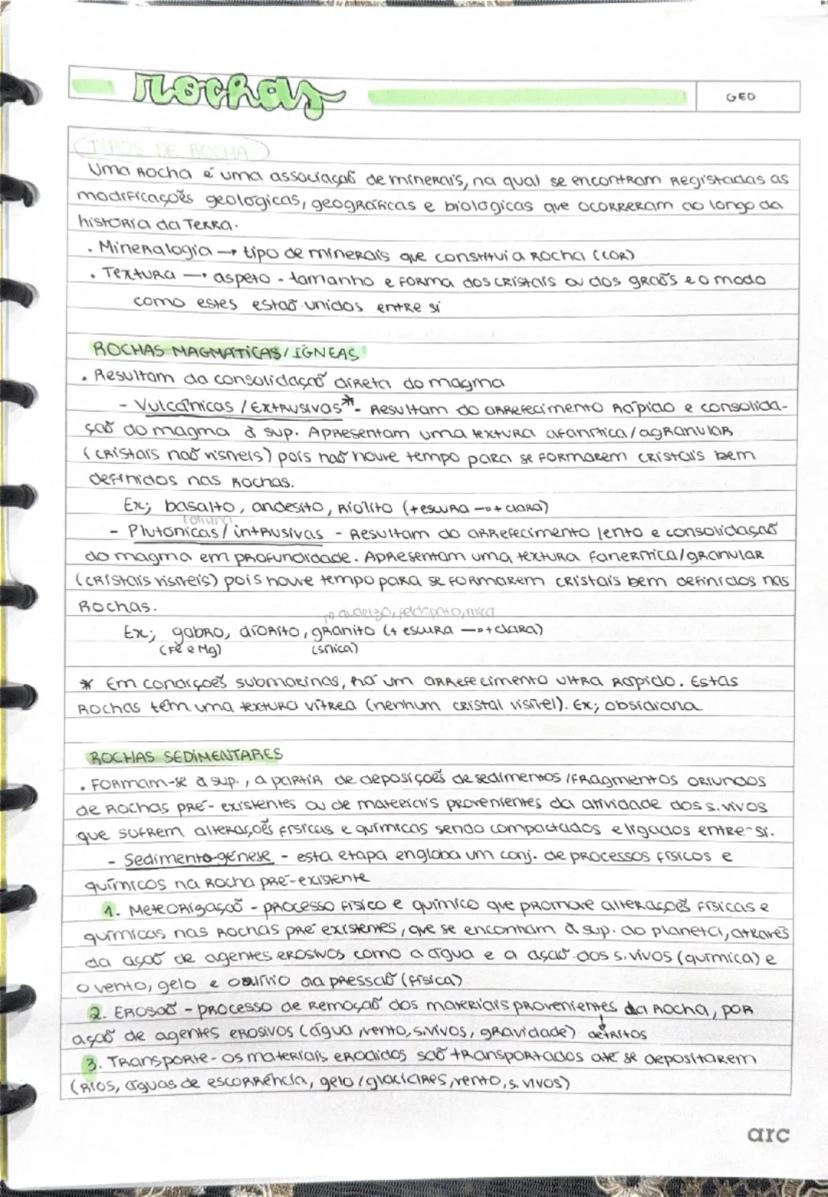 Rochas
GEO
TIPOS DE ROCHA
Uma Rocha é uma associação de minerais, na qual se encontram registadas as
modificações geológicas, geográficas e biológicas que ocorreram ao longo da
história da Terra.
. Mineralogia → tipo de minerais que constitui a Rocha (cor)
. Textura → aspeto - tamanho e forma dos cristais ou dos grãos e o modo
como estes estão unidos entre si
ROCHAS MAGMÁTICAS/ÍGNEAS
. Resultam da consolidação direta do magma
- Vulcânicas / Extrusivas* - Resultam do arrefecimento rápido e consolida-
ção do magma à sup. Apresentam uma textura afanítica/agranular
(cristais não visíveis) pois não houve tempo para se formarem cristais bem
definidos nas rochas.
Ex; basalto, andesito, riolito (+ escura → + clara)
- Plutónicas / intrusivas - Resultam do arrefecimento lento e consolidação
do magma em profundidade. Apresentam uma textura fanerítica/granular
(cristais visíveis) pois houve tempo para se formarem cristais bem definidos nas
Rochas.
quartzo, feldspato, mica
Ex; gabro, diorito, granito (+ escura → + clara)
(Fe e Mg) (sílica)
* Em condições submarinas, há um arrefecimento ultra rápido. Estas
rochas têm uma textura vítrea (nenhum cristal visível). Ex; obsidiana
ROCHAS SEDIMENTARES
. Formam-se à sup., a partir de deposições de sedimentos/fragmentos oriundos
de rochas pré-existentes ou de materiais provenientes da atividade dos s. vivos
que sofrem alterações físicas e químicas sendo compactados e ligados entre-si.
- Sedimentogénese - esta etapa engloba um conj. de processos físicos e
químicos na rocha pré-existente
1. Meteorização - processo físico e químico que promove alterações físicas e
químicas nas rochas pré existentes, que se enconham à sup. do planeta, através
da ação de agentes erosivos como a água e a ação dos s. vivos (química) e
o vento, gelo e o alívio da pressão (física)
2. Erosão - processo de remoção dos materiais provenientes da rocha, por
ação de agentes erosivos (água, vento, s. vivos, gravidade) detritos
3. Transporte - os materiais erodidos são transportados até se depositarem
(rios, águas de escorrência, gelo/glaciares, vento, s. vivos)
arc